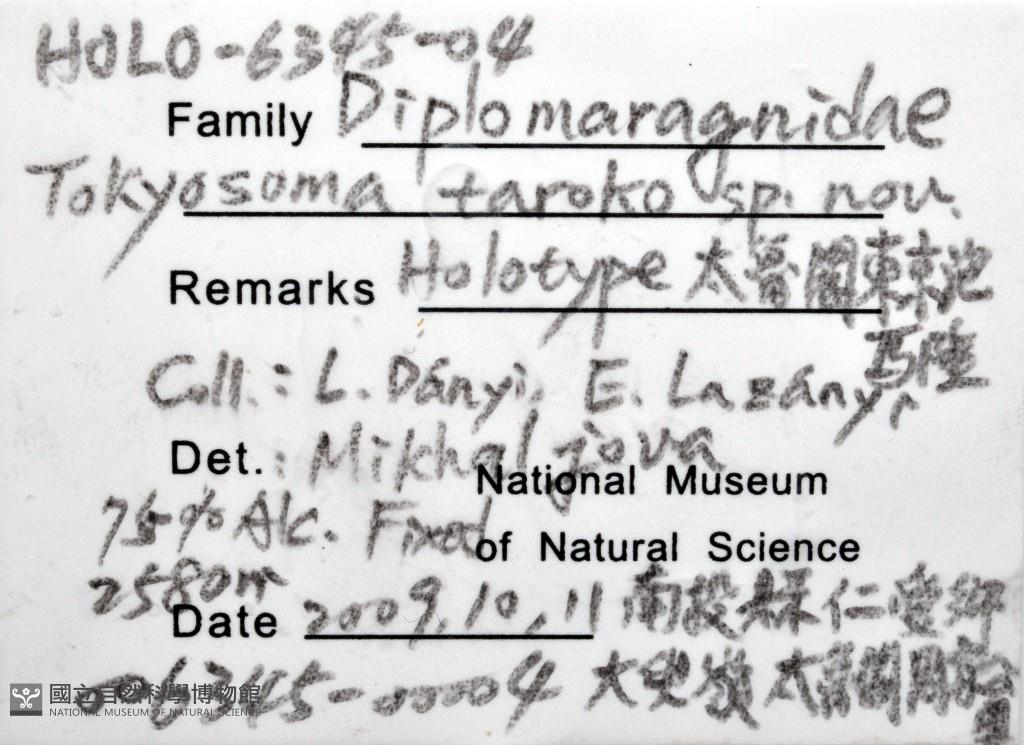 HOLO-6345-04
Family Diplomaragnidae
Tokyosoma taroko sp. nov.
Remarks Holotype 太魯閣東京池
馬陸
Coll.: L. Dányi, E. Lazányi
Det.: Mikhaljova
National Museum
75% Alc. Fixed
of Natural Science
2580m
Date 2009,10,11 南投縣仁愛鄉
006345-00004 大禹嶺 太魯閣國家
國立自然科學博物館
NATIONAL MUSEUM OF NATURAL SCIENCE